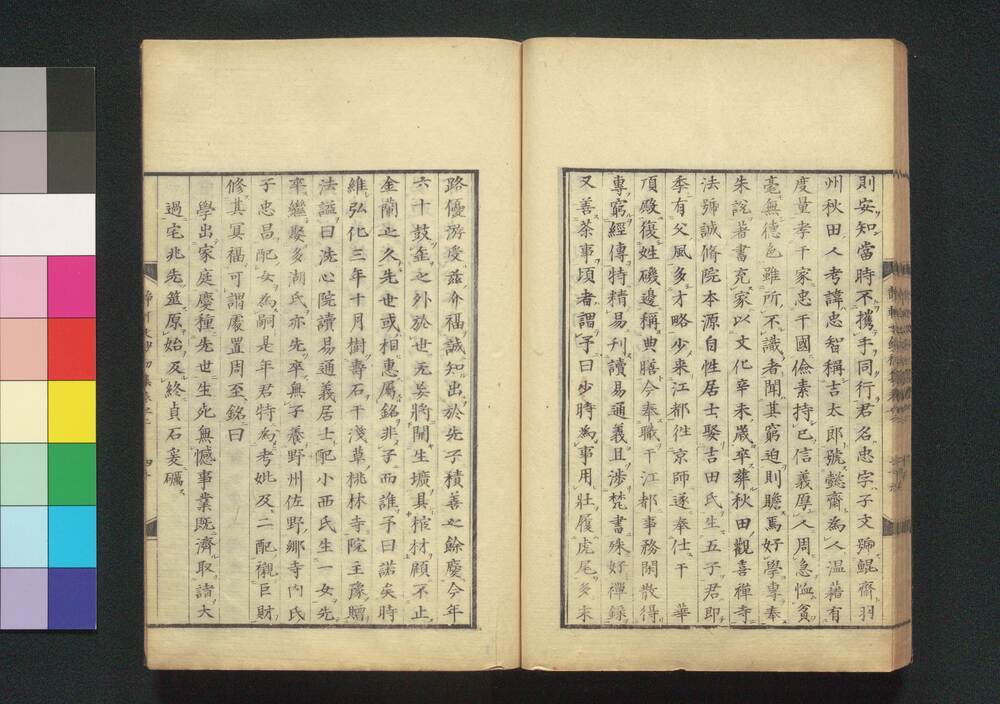 則安知當時不攜手同行君名忠字子文號鯤齋羽
州秋田人考諱忠智稱吉太郎號懿齋為人温藉有
度量孝于家忠于國儉素持已信義厚人周急恤貧
毫無德色雖所不識者聞其窮迫則贍焉好學專奉
朱說著書充家以文化辛未歲卒葬秋田觀喜禪寺
法號誠脩院本源自性居士娶吉田氏生五子君即
季有父風多才略少來江都徃京師遂奉仕于　華
頂殿復姓磯邊稱典膳今奉職于江都事務閑散得
專窮經傳特精易刊讀易通義且涉梵書殊好禪錄
又善茶事頃者謂予曰少時為事用壯履虎尾多來
路優游受茲介福誠知出於先子積善之餘慶今年
六十鼓缶之外於世无妄將開生壙具棺材顧不止
金蘭之久先世或相惠屬銘非子而誰予曰諾矣時
維弘化三年十月樹壽石于淺草桃林寺院主豫贈
法謚曰洗心院讀易通義居士配小西氏生一女先
卒繼娶多湖氏亦先卒無子養野州佐野鄉寺內氏
子忠昌配女為嗣是年君特為考妣及二配襯巨財
修其冥福可謂處置周至銘曰
學出家庭慶種先世生死無憾事業既濟取諸大
過宅兆先筮原始及終貞石爰礪